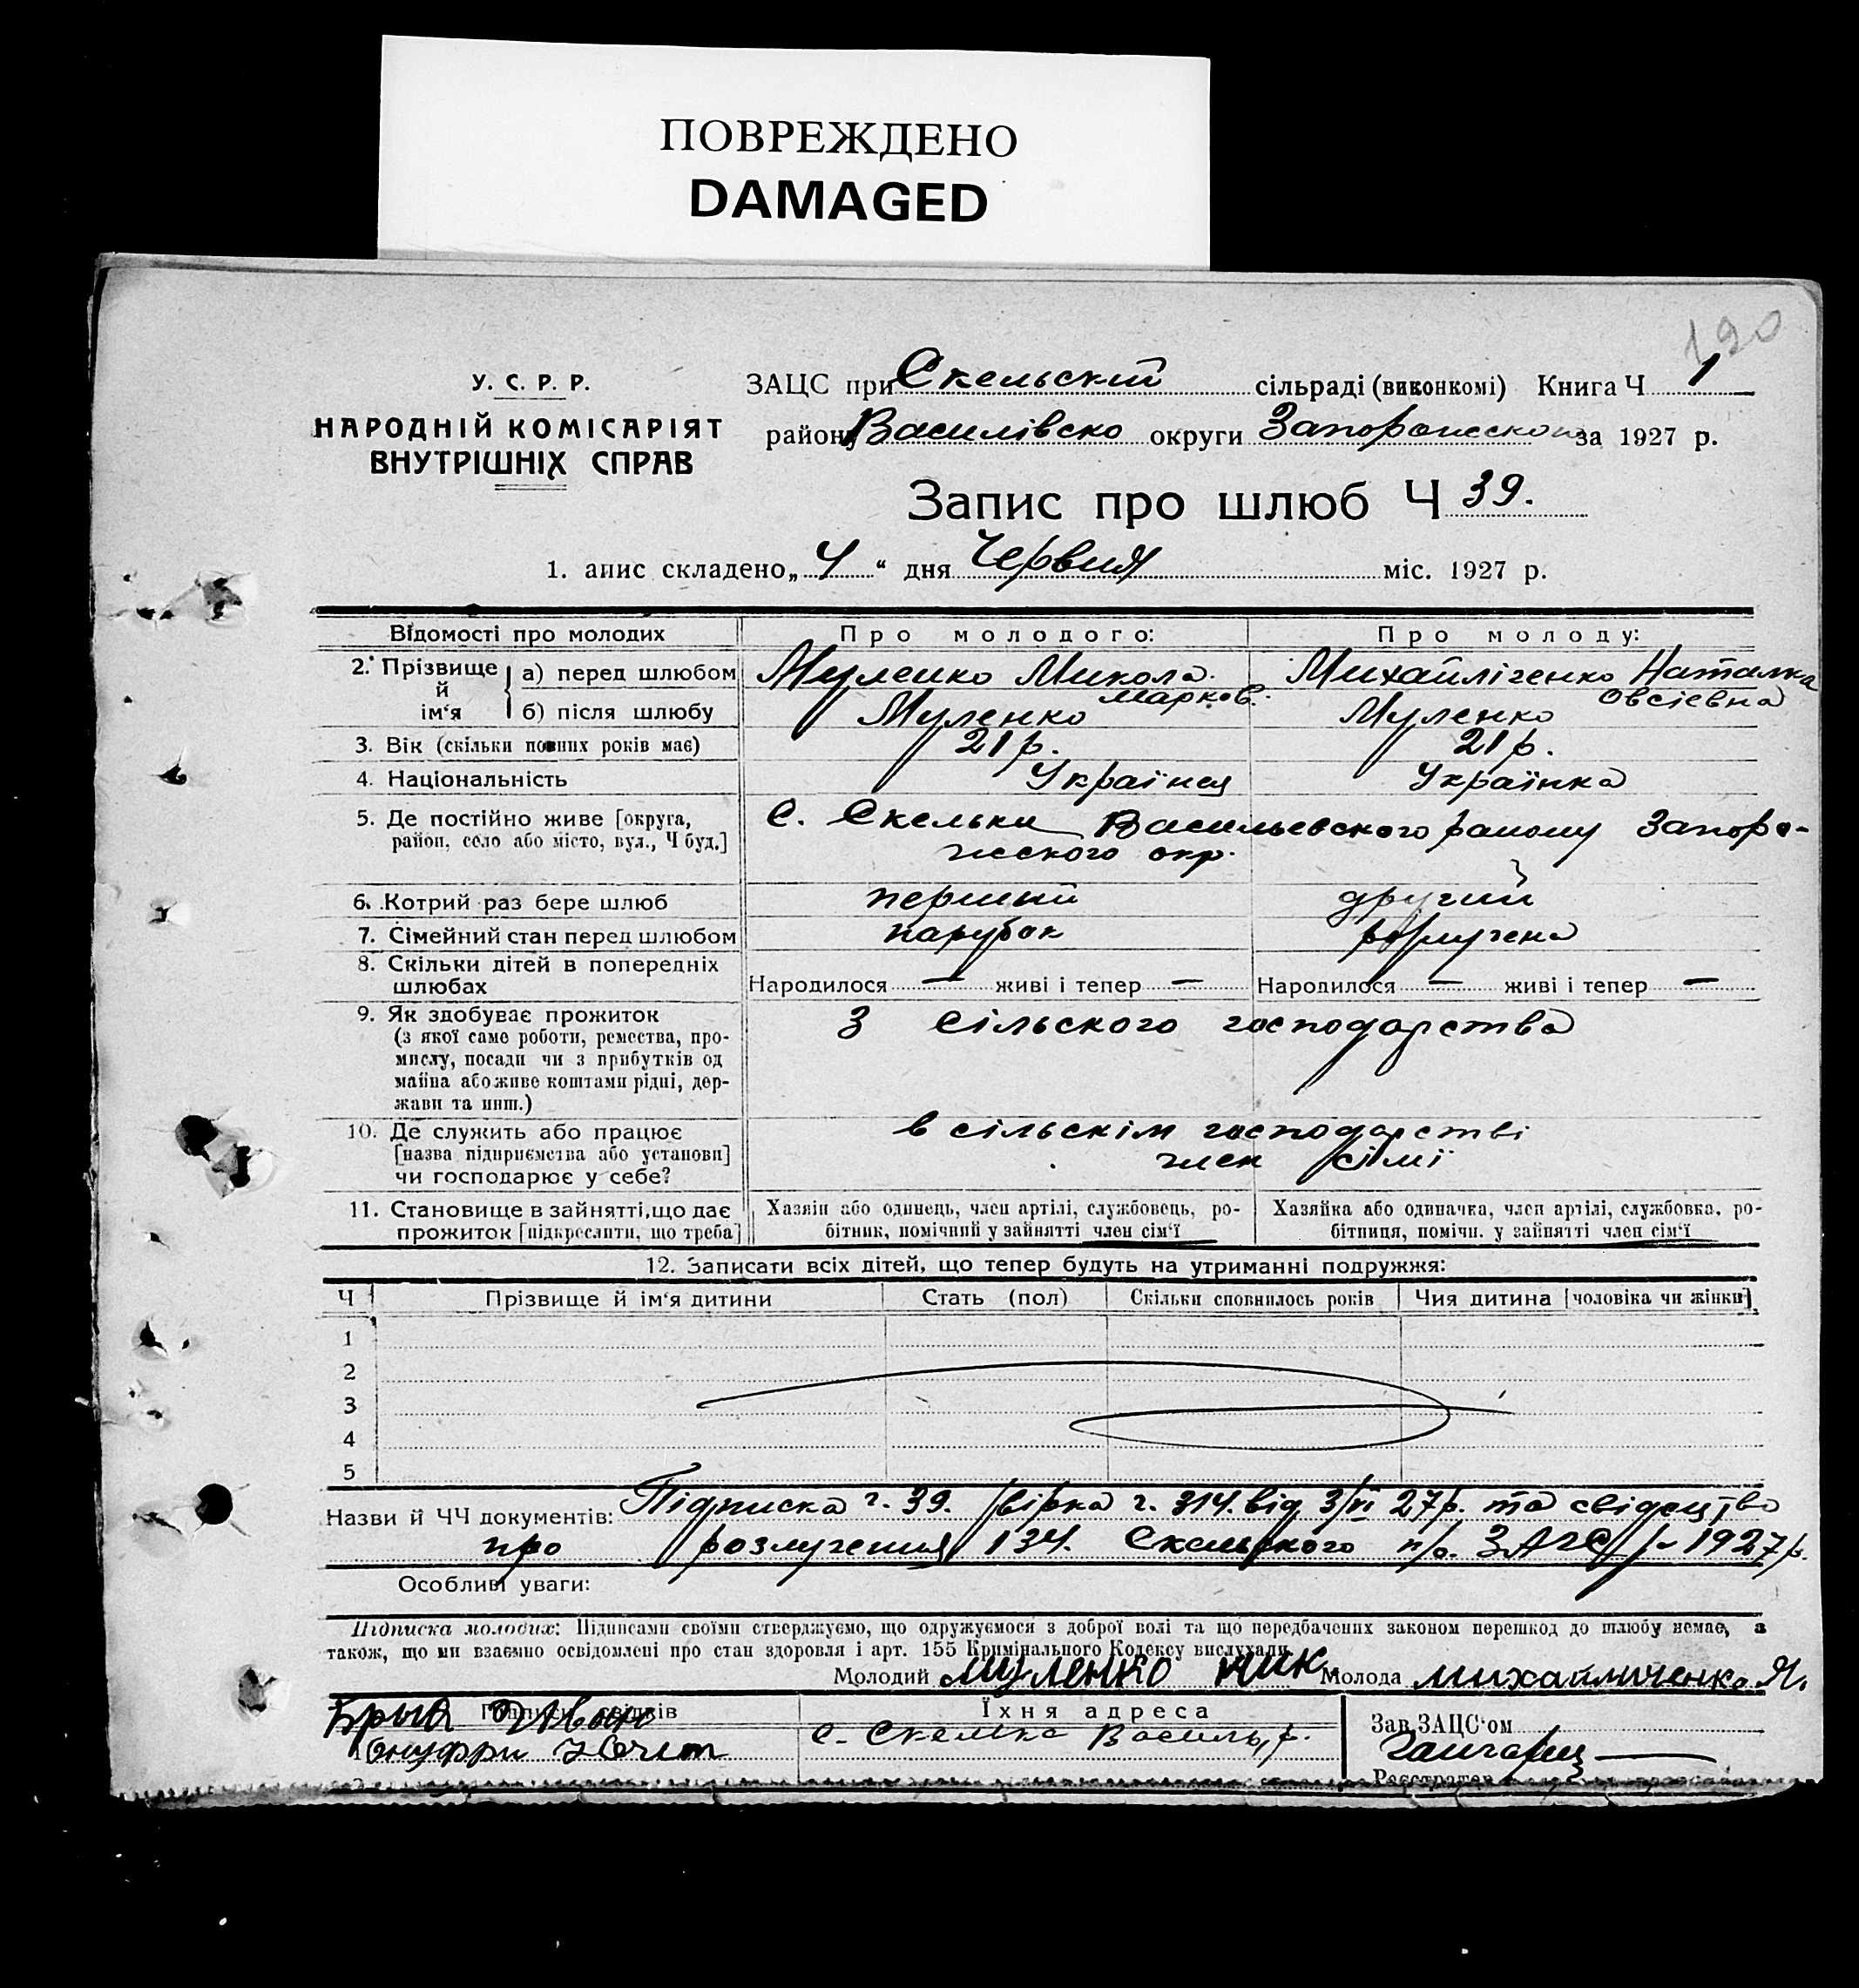 ПОВРЕЖДЕНО
DAMAGED
190
У. С. Р. Р.
НАРОДНІЙ КОМІСАРІЯТ
ВНУТРІШНІХ СПРАВ
ЗАЦС при Скельский сільраді (виконкомі) Книга Ч 1
району Василівско округи Запорожской за 1927 р.
Запис про шлюб Ч 39.
1. апис складено „ 4 “ дня Червня міс. 1927 р.
Відомості про молодих Про молодого: Про молоду:
2. Прізвище й ім‘я а) перед шлюбом Муленко Микола Марков. Михайліченко Наталка Овсієвна
б) після шлюбу Муленко Муленко
3. Вік (скільки повних років має) 21 р. 21 р.
4. Національність Українец Українка
5. Де постійно живе [округа, С. Скельки Васильевского району Запоро-
район, село або місто, вул., Ч буд.] жского окр.
6. Котрий раз бере шлюб перший другий
7. Сімейний стан перед шлюбом парубок розлучена
8. Скільки дітей в попередніх
шлюбах Народилося — живі і тепер — Народилося — живі і тепер —
9. Як здобуває прожиток З сільского господарства
(з якої саме роботи, ремества, про-
мислу, посади чи з прибутків од
майна або живе коштами рідні, дер-
жави та инш.)
10. Де служить або працює в сільскім господарстві
[назва підприємства або установи] член сімї
чи господарює у себе?
11. Становище в зайнятті, що дає Хазяїн або одинець, член артілі, службовець, ро- Хазяйка або одиначка, член артілі, службовка, ро-
прожиток [підкреслити, що треба] бітник, помічний у зайнятті член сім‘ї бітниця, помічн. у зайнятті член сім‘ї
12. Записати всіх дітей, що тепер будуть на утриманні подружжя:
Ч Прізвище й ім‘я дитини Стать (пол) Скільки сповнилось років Чия дитина [чоловіка чи жінки]
1
2
3
4
5
Назви й ЧЧ документів: Підписка ч. 39. ч. 314. від 3/VI 27 р. та свідецтво
про розлучення 134. Скельского р. ЗАГС 1927 р.
Особливі уваги:
Підписка молодих: Підписами своїми стверджуємо, що одружуємося з доброї волі та що передбачених законом перешкод до шлюбу немає, а
також, що ми взаємно освідомлені про стан здоровля і арт. 155 Кримінального Кодексу вислухали
Молодий Муленко Ник. Молода михайличенко Н.
Підписи свідків Їхня адреса Зав. ЗАЦС‘ом
Иван
с. Скелька Василь. р.
Реєстратор